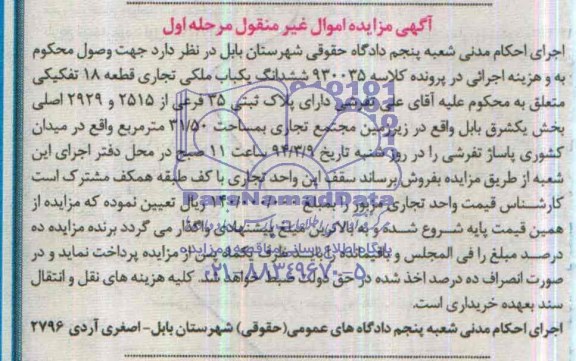 آگهی مزایده اموال غیر منقول مرحله اول
اجرای احکام مدنی شعبه پنجم دادگاه حقوقی شهرستان بابل در نظر دارد جهت وصول محکوم
به و هزینه اجرائی در پرونده کلاسه ۹۳۰۰۳۵ ششدانگ یکباب ملکی تجاری قطعه ۱۸ تفکیکی
متعلق به محکوم علیه آقای علی دارای پلاک ثبتی ۳۵ فرعی از ۲۵۱۵ و ۲۹۲۹ اصلی
بخش یکشرق بابل واقع در زیرزمین مجتمع تجاری بمساحت ۳۱/۵۰ مترمربع واقع در میدان
کشوری پاساژ تفرشی را در روز شنبه تاریخ ۹۴/۳/۹ ساعت ۱۱ صبح در محل دفتر اجرای این
شعبه از طریق مزایده بفروش برساند سقف این واحد تجاری با کف طبقه همکف مشترک است
کارشناس قیمت واحد تجاری مزبور را بمبلغ ریال تعیین نموده که مزایده از
همین قیمت پایه شروع شده و به بالاترین مبلغ پیشنهادی واگذار می گردد برنده مزایده ده
درصد مبلغ را فی المجلس و باقیمانده را باید ظرف یکماه پس از مزایده پرداخت نماید و در
صورت انصراف ده درصد اخذ شده در حق دولت ضبط خواهد شد. کلیه هزینه های نقل و انتقال
سند بعهده خریداری است.
اجرای احکام مدنی شعبه پنجم دادگاه های عمومی(حقوقی) شهرستان بابل- اصغری آردی ۲۷۹۶
ParsNamadData
پایگاه اطلاع رسانی مناقصه و مزایده
۰۲۱-۸۸۳۴۹۶۷۰-۵